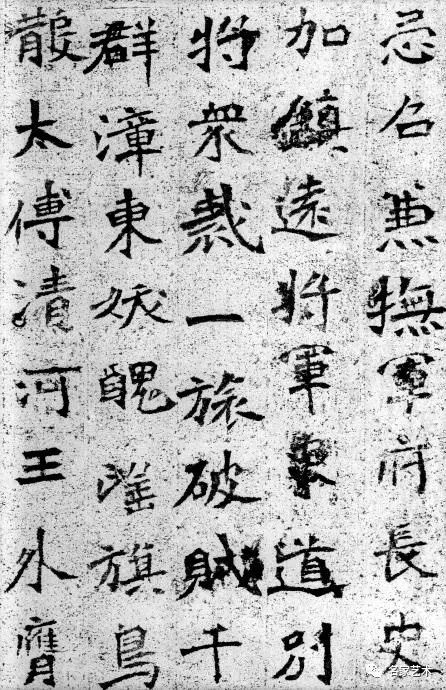 忌召兼撫軍府長史
加鎮遠將軍東道別
將衆裁一旅破賊千
群漳東妖醜摧旗鳥
散太傅清河王外膺
名家艺术